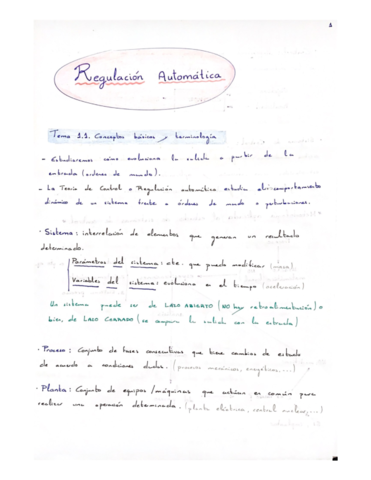 Regulación Automática
Tema 1.1. Conceptos básicos y terminología
- Estudiaremos como evoluciona la salida a partir de la
entrada (órdenes de mando).
- La Teoría de Control o Regulación automática estudia el comportamiento
dinámico de un sistema frente a órdenes de mando o perturbaciones.
· Sistema: interrelación de elementos que generan un resultado
determinado.
Parámetros del sistema: cte. que puedo modificar (masa).
Variables del sistema: evoluciona en el tiempo (aceleración)
Un sistema puede ser de LAZO ABIERTO (NO hay retroalimentación) o
bien, de LAZO CERRADO (se compara la salida con la entrada)
· Proceso: Conjunto de fases consecutivas que tiene cambios de estado
de acuerdo a condiciones dadas. (procesos mecánicos, energéticos, ...)
· Planta: Conjunto de equipos / máquinas que actúan en común para
realizar una operación determinada. (planta eléctrica, central nuclear, ...)